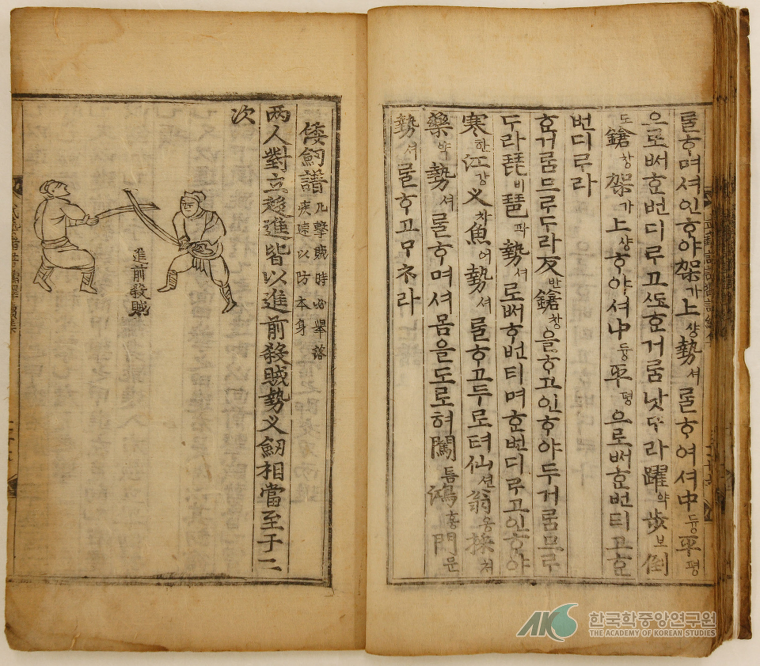 롤ᄒᆞ며셔인ᄒᆞ야架가上샹勢셔롤ᄒᆞ여셔中듕平평
으로ᄡᅥᄒᆞᆫ번디ᄅᆞ고ᄯᅩᄒᆞᆫ거롬낫ᄃᆞ라躍약步보倒
도鎗창架가上샹ᄒᆞ야셔中듕平평으로ᄡᅥᄒᆞᆫ번티고ᄒᆞᆫ
번디ᄅᆞ라
ᄒᆞᆫ거롬므르두라反반鎗창을ᄒᆞ고인ᄒᆞ야두거롬므르
두라琵비琶파勢셔로ᄡᅥᄒᆞᆫ번티며ᄒᆞᆫ번디ᄅᆞ고인ᄒᆞ야
寒한江강叉차魚어勢셔롤ᄒᆞ고두로텨仙션翁옹採ᄎᆡ
藥약勢셔롤ᄒᆞ며셔몸을도로혀闖틈鴻홍門문
勢셔롤ᄒᆞ고ᄆᆞᄎᆞ라
倭劒譜 凡擊賊時必擧落
疾速以防本身
两人對立趍進皆以進前殺賊勢叉劒相當至于二
次
進前殺賊
AKS 한국학중앙연구원
THE ACADEMY OF KOREAN STUDIES